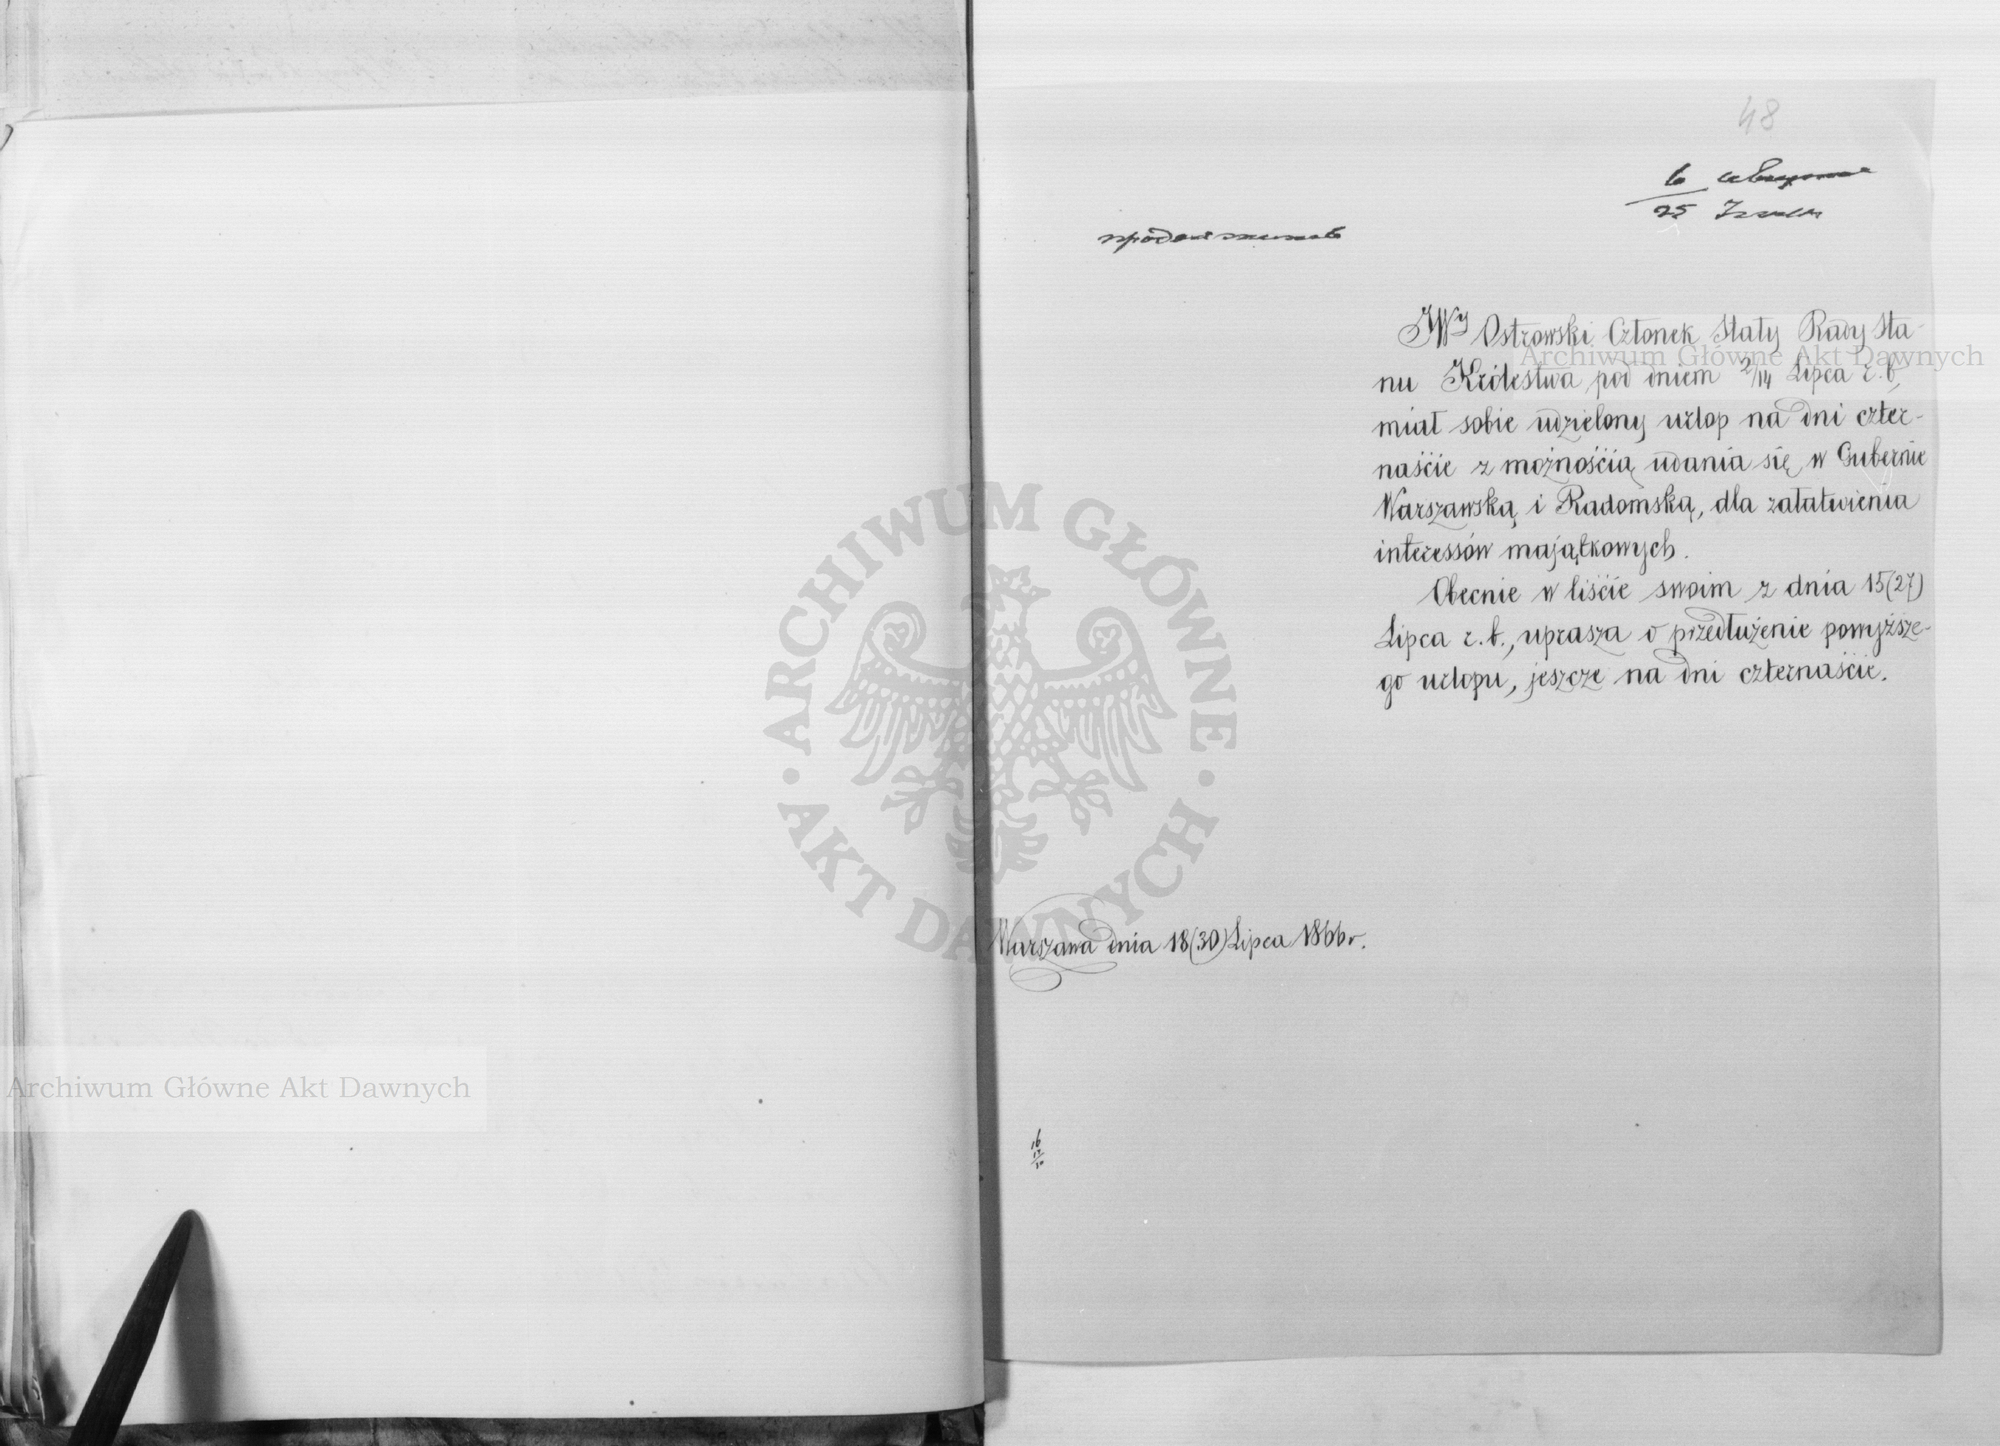 48
6 августа
25 Іюля
продолженіе
JWy Ostrowski Członek Stały Rady Sta-
nu Królestwa pod dniem 2/14 Lipca r. b.
miał sobie udzielony urlop na dni czter-
naście z możnością udania się w Gubernie
Warszawską i Radomską, dla załatwienia
interessów majątkowych.
Obecnie w liście swoim z dnia 15(27)
Lipca r. b., uprasza o przedłużenie powyższe-
go urlopu, jeszcze na dni czternaście.
Warszawa dnia 18(30) Lipca 1866 r.
Archiwum Główne Akt Dawnych
Archiwum Główne Akt Dawnych
ARCHIWUM GŁÓWNE · AKT DAWNYCH ·